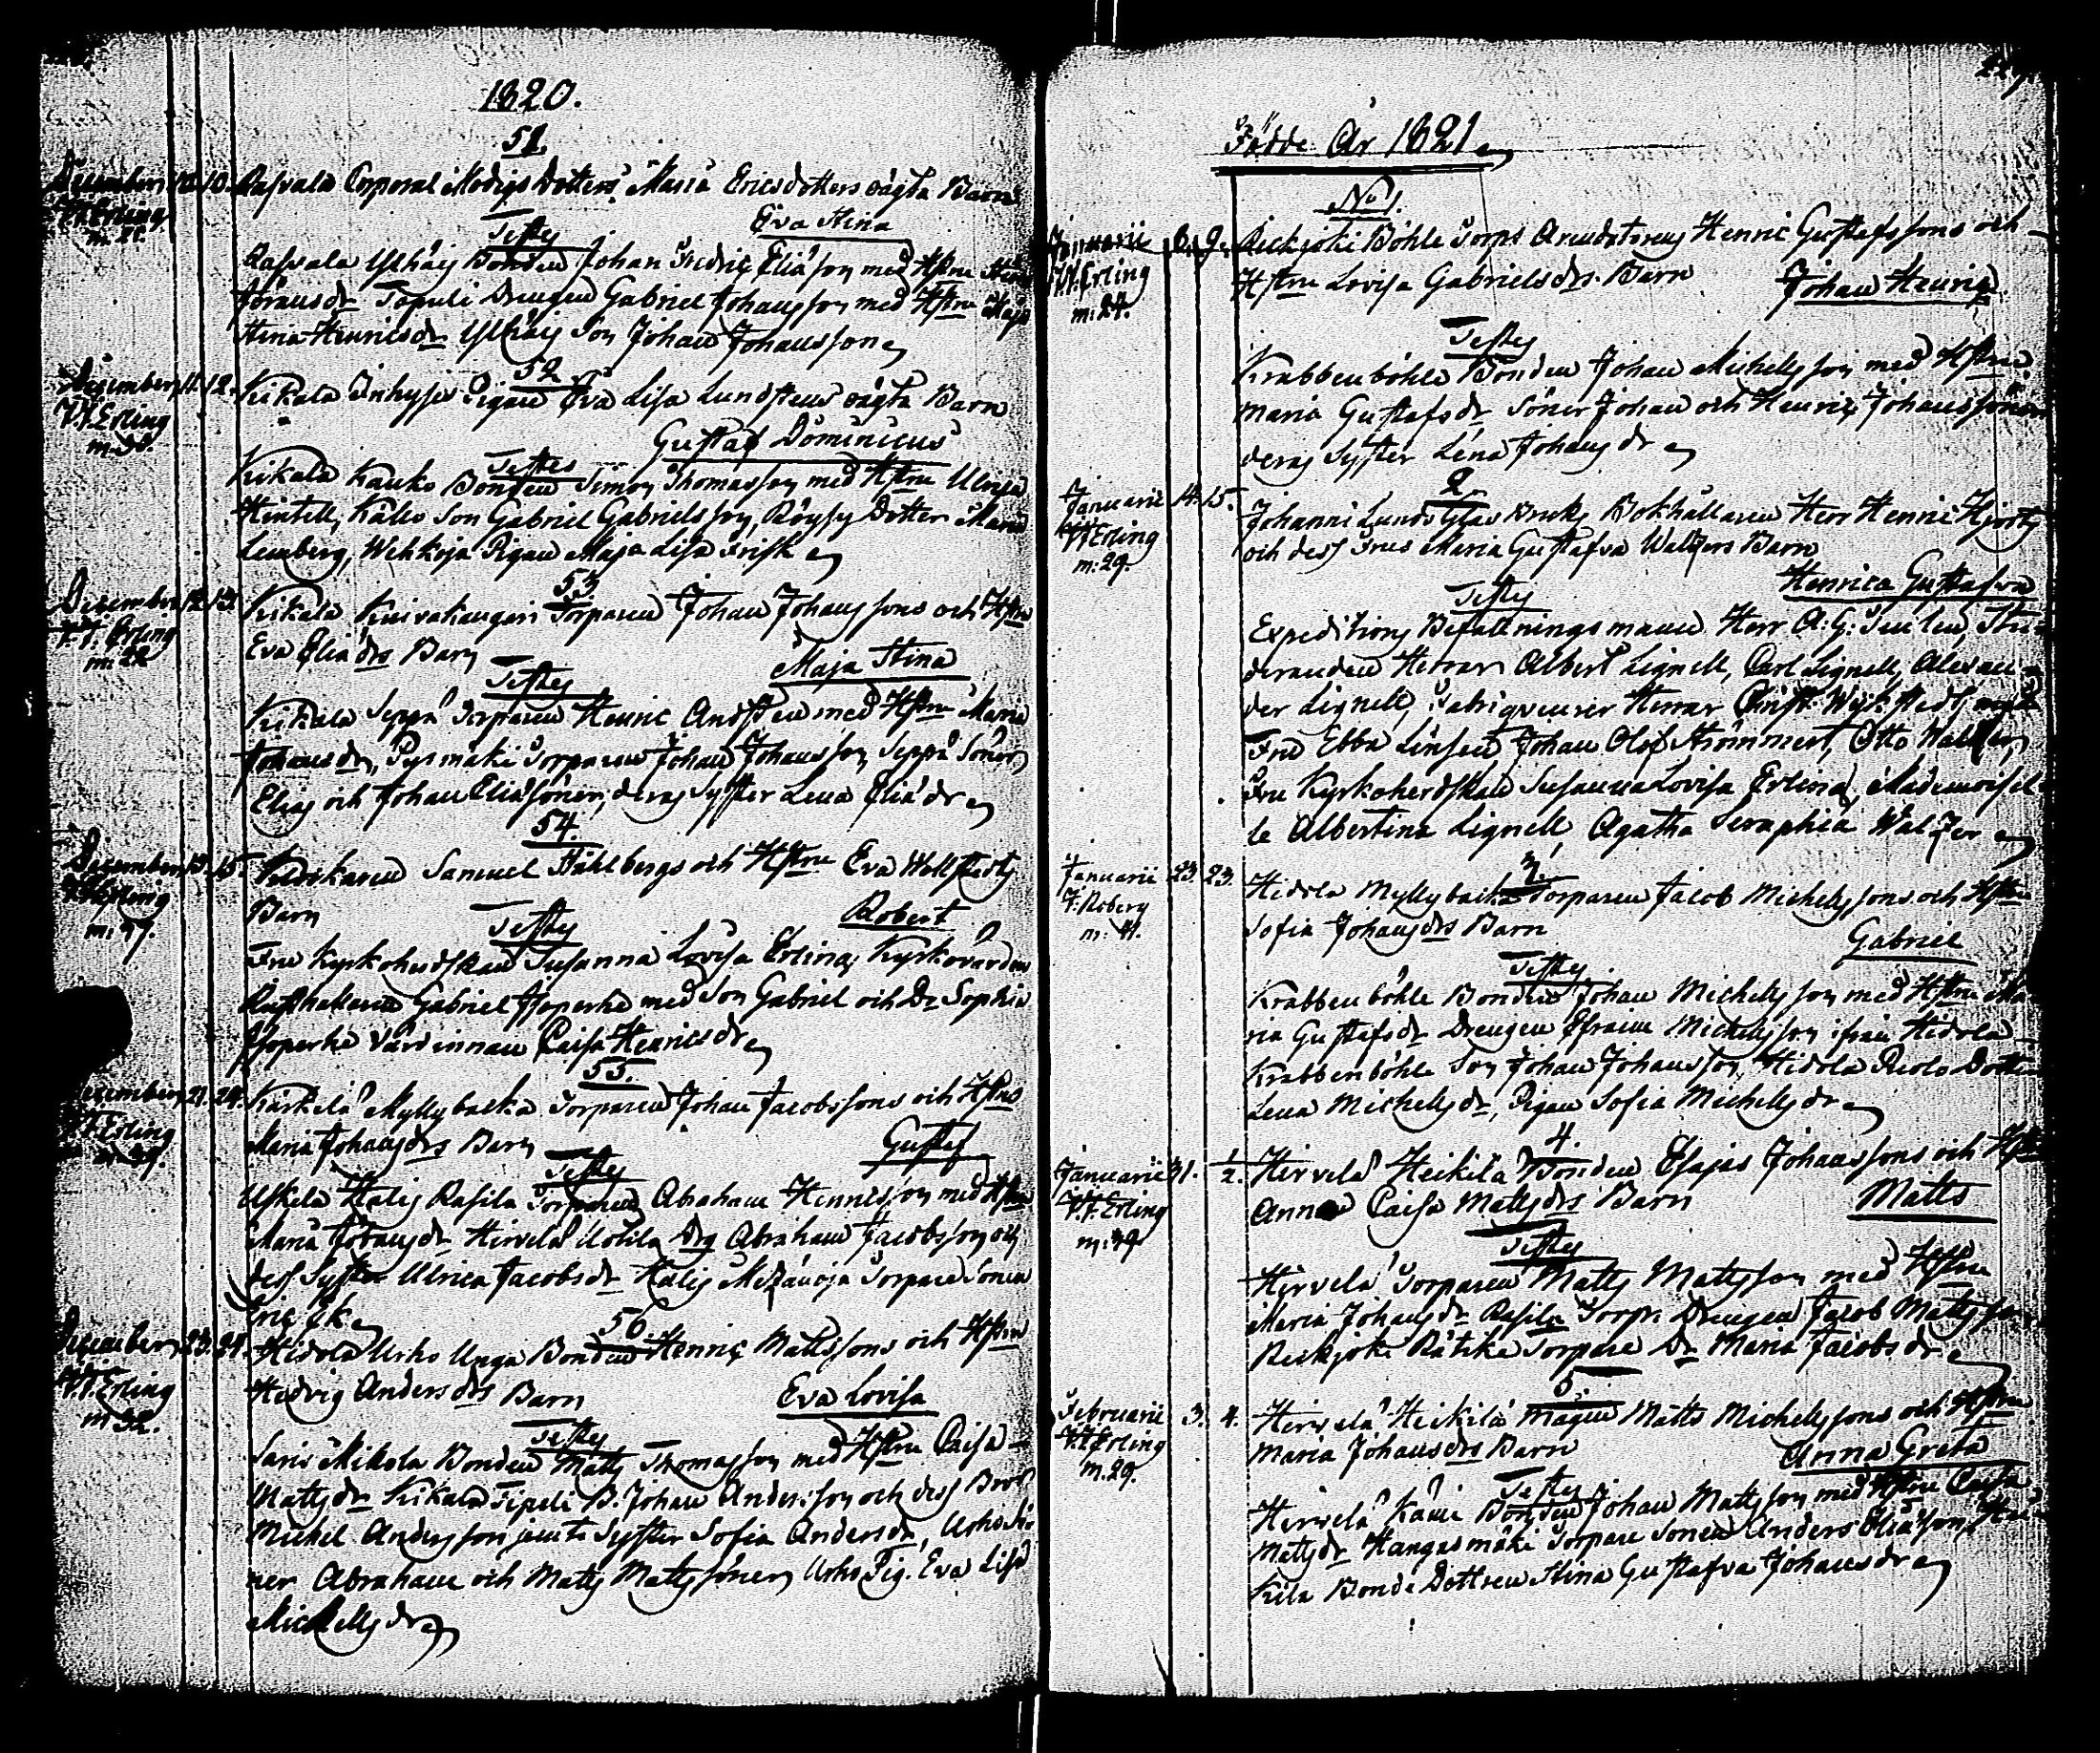 1820.
51.
December 10. 10. Rasvala Corporal Modigs Dotters Maria Ericsdotters oägta Barn
V.P. Erling
m. 21.
Eva Stina
Testes
Rasvala Ylhäis Bonden Johan Fredric Eliasson med Hstru Stina
Göransdr Topuli Drengen Gabriel Johansson med Hstru Maja
Stina Henricsdr Ylhäis Son Johan Johansson
52
December 11. 12. Kikala Inhyses Pigan Eva Lisa Lundstens oägta Barn
V.P. Erling
m. 30.
Gustaf Dominicus
Testes
Kikala Kauko Bonden Simon Thomasson med Hstru Ulrica
Hintell, Källo Son Gabriel Gabrielsson, Röysy Dotter Maria
Lemberg, Wehkoja Pigan Maja Lisa Frisk
53
December 12. 13. Kikala Kuivakangari Torparen Johan Johanssons och Hstru
V.P. Erling
m. 22
Eva Eliädrs Barn
Maja Stina
Testes
Kikala Seppä Torparen Henric Andsten med Hstru Maria
Johansdr, Pysmäki Torparen Johan Johansson Seppä Söner
Elias och Johan Eliäsöner, deras Syster Lena Eliädr
54.
December 13. 15. Klockaren Samuel Ståhlbergs och Hstru Eva Wellstedts
V.P. Erling
m. 47.
Barn
Robert
Testes
Fru Kyrkoherdskan Susanna Lovisa Erling, Kyrkovärden
Rusthållaren Gabriel Isoperhe med Son Gabriel och Dr Sophia
Isoperhe Värdinnan Caisa Henricsdr
55.
December 21. 24. Kärkelä Myllybacka Torparen Johan Jacobssons och Hstrus
V.P. Erling
m. 29.
Maria Johansdrs Barn
Gustaf
Testes
Uskela Halis Rasila Torparen Abraham Henricsson med Hstru
Maria Johansdr Hirvelä Uotila Drg Abraham Jacobsson och
dess Syster Ulrica Jacobsdr Halis Metzänoja Torpare Sonen
Eric Ek
56
December 23. 24. Hidola Urho Unga Bonden Henric Mattssons och Hstru
V.P. Erling
m 32.
Hedvig Andersdrs Barn
Eva Lovisa
Testes
Saris Mikola Bonden Matts Thomasson med Hstru Caisa
Mattsdr Kikala Tipeli B. Johan Andersson och dess Bror
Michel Andersson jemte Syster Sofia Andersdr, Urho Sö-
ner Abraham och Matts Mattssöner, Urho Pig. Eva Lisa
Michelsdr
Födde År 1821
No 1.
Januarii 8. 9. Reckjoki Böhle Torps Arendatoren Henric Gustafssons och
V.P. Erling
m: 24.
Hstru Lovisa Gabrielsdrs Barn
Johan Henric
Testes
Krabbenböhle Bonden Johan Michelsson med Hstru
Maria Gustafsdr Söner Johan och Henric Johanssöner
deras Syster Lena Johansdr
2.
Januarii 14. 15. Johannislunds Glas Bruks Bokhållaren Herr Henric Hjorts
V.P. Erling
m: 29.
och dess Frus Maria Gustafva Walzers Barn
Henrica Gustafva
Testes
Expeditions Befallningsmannen Herr A: G: Tuulin, Stu-
deranden Herrar Albert Lignell, Carl Lignell, Alexan-
der Lignell, Fabriqveurer Herrar Christ. Wykstedt, med
Fru Ebba Linsen Johan Olof Strömmert, Otto Walzer,
Fru Kyrkoherdskan Susanna Lovisa Erling, Mademoisel-
le Albertina Lignell, Agatha Seraphia Walzer
3.
Januarii 23. 23. Hidola Myllybacka Torparen Jacob Michelssons och Hstru
F: Roberg
m: 41.
Sofia Johansdrs Barn
Gabriel
Testes
Krabbenböhle Bonden Johan Michelsson med Hstru Ma-
ria Gustafsdr Drengen Efraim Michelsson ifrån Hidola
Krabbenböhle Son Johan Johansson, Hidola Dotter
Lena Michelsdr, Pigan Sofia Michelsdr
4.
Januarii 31. 1/2. Hirvelä Heikilä Bonden Esajas Johanssons och Hstru
V.P. Erling
m: 39
Anna Caisa Mattsdrs Barn
Matts
Testes
Hirvelä Torparen Matts Mattsson med Hstru
Maria Johansdr Rasila Torps Drengen Jacob Mattsson,
Reckjoki Rätike Torpare Dr Maria Jacobsdr
5.
Februarii 3. 4. Hirvelä Heikilä Mågen Matts Michelssons och Hstru
V.P. Erling
m. 29.
Maria Johansdrs Barn
Anna Greta
Testes
Hirvelä Kämi Bonden Johan Mattsson med Hstru Caisa
Mattsdr Hangasmäki Torpare Sonen Anders Eliässon, Hei-
kilä Bonde Dottren Stina Gustafva Johansdr